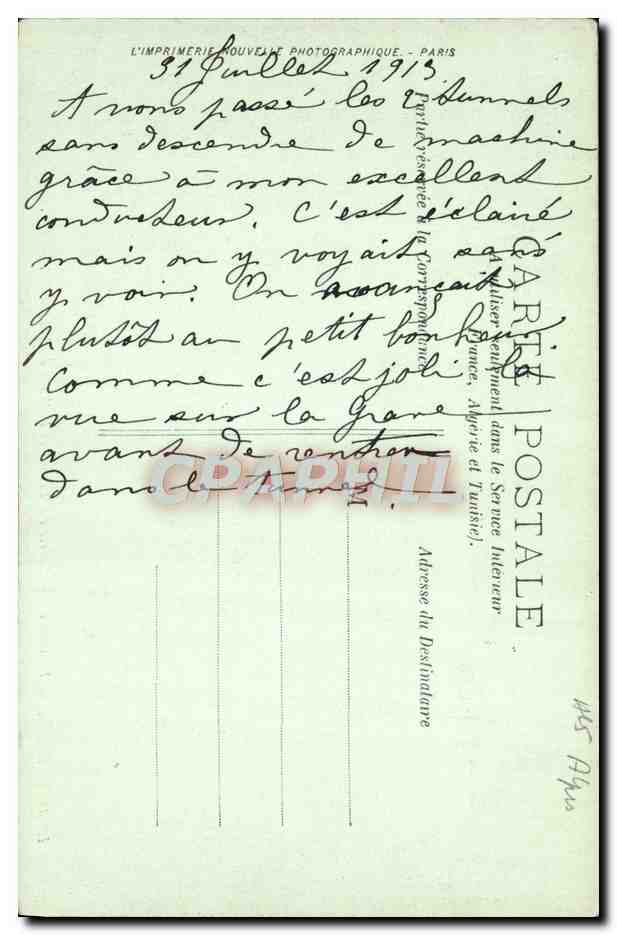 L'IMPRIMERIE NOUVELLE PHOTOGRAPHIQUE. - PARIS
31 Juillet 1913
Avons passé les 2 tunnels
sans descendre de machine
grâce à mon excellent
conducteur. C'est éclairé
mais on y voyait sans
y voir. On avançait
plutôt au petit bonheur.
Comme c'est joli la
vue sur la Grave
avant de rentrer
dans le tunnel.
CARTE POSTALE
A utiliser seulement dans le Service Intérieur
(France, Algérie et Tunisie).
Partie réservée à la Correspondance
Adresse du Destinataire
M
CPAPHIL
Alpes